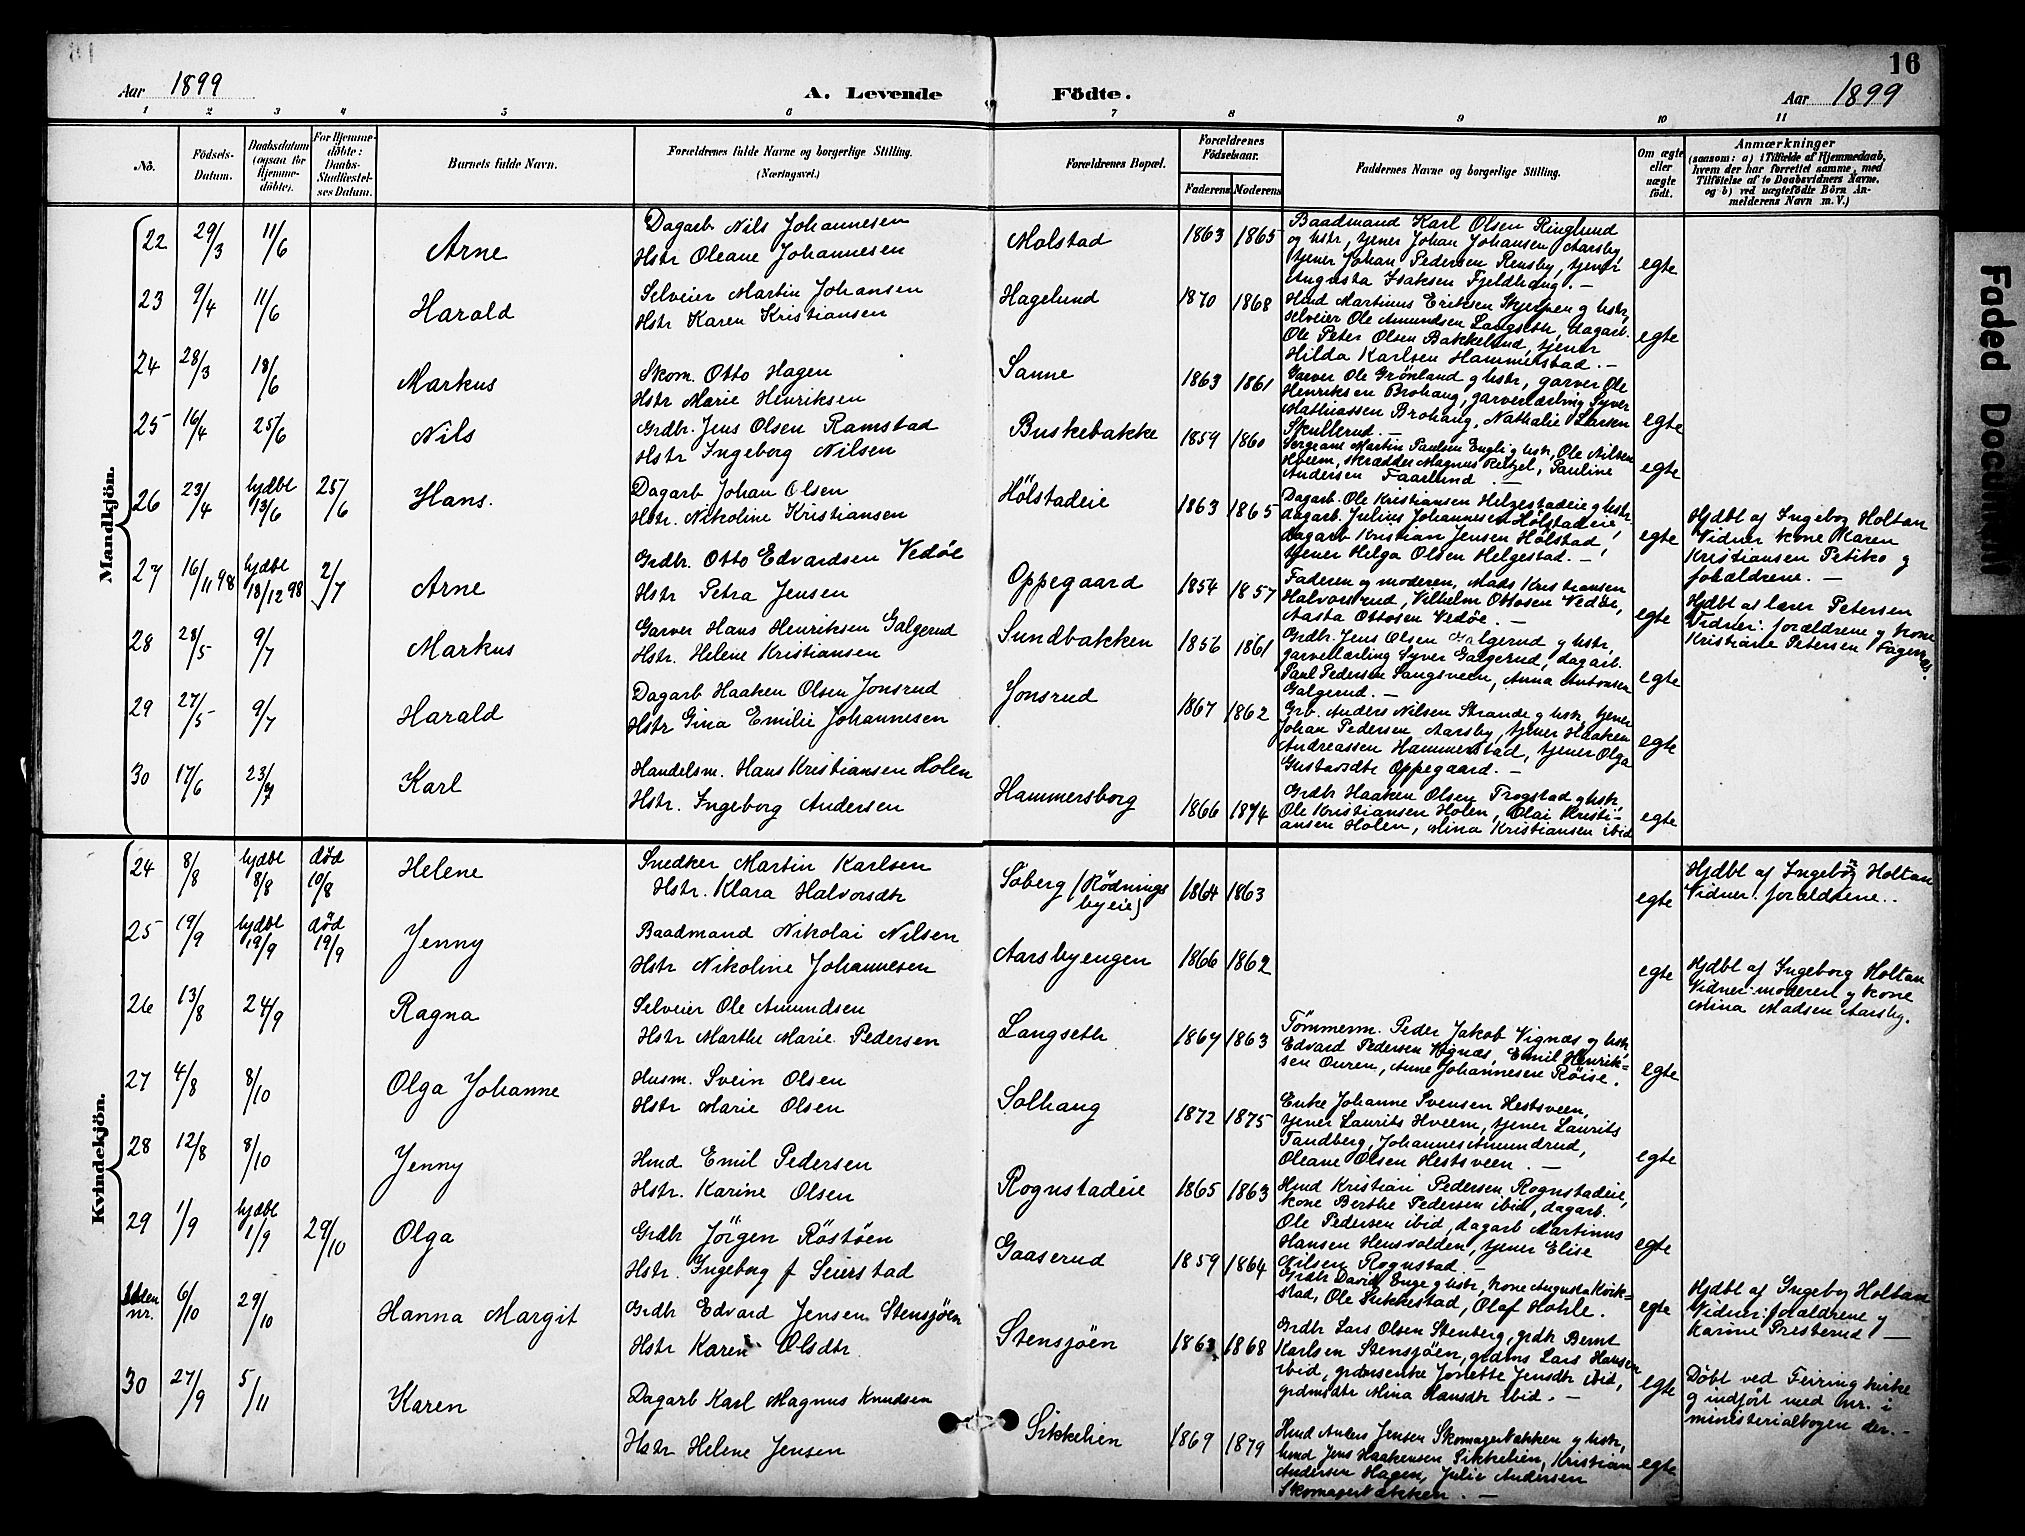 16
Aar 1899
A. Levende Födte.
Aar 1899
1 2 3 4 5 6 7 8 9 10 11
No.
Födsels-Datum.
Daabsdatum (ogsaa for Hjemme-döbte).
For Hjemme-döbte: Daabs-Stadfæstel-ses Datum.
Barnets fulde Navn.
Forældrenes fulde Navne og borgerlige Stilling.
(Næringsvei.)
Forældrenes Bopæl.
Forældrenes Födselsaar.
Faderens Moderens
Faddernes Navne og borgerlige Stilling.
Om ægte eller uægte födt.
Anmærkninger
(saasom: a) i Tilfælde af Hjemmedaab,
hvem der har forrettet samme, med
Tilföielse af to Daabsvidners Navne,
og b) ved uægtefödte Börn An-
melderens Navn m. V.)
Mandkjön.
22 29/3 11/6 Arne
Dagarb Nils Johannesen
Hstr Oleane Johannesen
Molstad 1863 1865
Baadmand Karl Olsen Ringlund
og hstr, tjener Johan Johansen Aarsby,
tjener Johan Pedersen Rensby, tjener
Augusta Isaksen Fjeldhaug. —
egte
23 9/4 11/6 Harald
Selveier Martin Johansen
Hstr Karen Kristiansen
Hagelund 1870 1868
Hmd Martinus Eriksen Skjerpen g hstr,
selveier Ole Amundsen Langseth, dagarb.
Ole Peter Olsen Bakkelund, tjener
Hilda Karlsen Hammerstad. —
egte
24 28/3 18/6 Markus
Skom. Otto Hagen
Hstr Marie Henriksen
Sanne 1863 1861
Garver Ole Grönland g hstr, garver Ole
Henriksen Brohaug, garverlærling Syver
Mathiassen Brohaug, Nathalie Larsen
Skullerud. —
egte
25 16/4 25/6 Nils
Grdbr. Jens Olsen Ramstad
Hstr Ingeborg Nilsen
Buskebakke 1859 1860
Sergeant Martin Paulsen Engli g hstr, Ole Nilsen
Hveem, skrædder Magnus Retzel, Pauline
Andersen Faarlund. —
egte
26 23/4 hjdbt 13/6 25/6 Hans.
Dagarb Johan Olsen
Hstr. Nikoline Kristiansen
Hölstadeie 1863 1865
Dagarb. Ole Kristiansen Helgestadeie g hstr,
dagarb. Julius Johannesen Hölstadeie,
dagarb Kristian Jensen Hölstad,
tjener Helga Olsen Helgestad. —
egte
Hjdbt af Ingeborg Holtan
Vidner kone Maren
Kristiansen Petiko g
forældrene. —
27 16/11 98 hjdbt 18/12 98 2/7 Arne
Grdbr. Otto Edvardsen Vedöe
Hstr Petra Jensen
Oppegaard 1854 1857
Faderen g moderen, Mads Kristiansen
Halvorsrud, Vilhelm Ottosen Vedöe,
Aasta Ottosen Vedöe. —
egte
Hjdbt af lærer Petersen
Vidner: forældrene g kone
Kristiane Petersen Fagernæs.
28 28/5 9/7 Markus
Garver Hans Henriksen Galgerud
Hstr. Helene Kristiansen
Sundbakken 1856 1861
Grdbr. Jens Olsen Galgerud g hstr,
garverlærling Syver Galgerud, dagarb.
Paul Pedersen Langsveen, Anna Antonsen
Galgerud. —
egte
29 27/5 9/7 Harald
Dagarb Haaken Olsen Jonsrud
Hstr Gina Emilie Johannesen
Jonsrud 1867 1862
Grb. Anders Nilsen Strande g hstr, tjener
Johan Pedersen Aarsby, tjener Haaken
Andreassen Hammerstad, tjener Olga
Gustavsdtr Oppegaard. —
egte
30 17/6 23/7 Karl
Handelsm. Hans Kristiansen Holen
Hstr. Ingeborg Andersen
Hammersborg 1866 1874
Grdbr Haaken Olsen Trogstad g hstr,
Ole Kristiansen Holen, Olai Kristi-
ansen Holen, Mina Kristiansen ibid
egte
Kvindekjön.
24 8/8 hjdbt 8/8 död 10/8 Helene
Snedker Martin Karlsen
Hstr. Klara Halvorsdtr
Söberg (Rödnings
byeie) 1864 1863
egte
Hjdbt af Ingeborg Holtan
Vidner: forældrene..
25 19/9 hjdbt 19/9 död 19/9 Jenny
Baadmand Nikolai Nilsen
Hstr Nikoline Johannesen
Aarsbyengen 1866 1862
egte
Hjdbt af Ingeborg Holtan
Vidner: moderen g kone
Mina Madsen Aarsby.
26 13/8 24/9 Ragna
Selveier Ole Amundsen
Hstr Marthe Marie Pedersen
Langseth 1867 1863
Tömmerm. Peder Jakob Vignæs g hstr
Edvard Pedersen Vignæs, Emil Henrik-
sen Ouren, Anne Johannesen Röise.
egte
27 4/8 8/10 Olga Johanne
Husm. Svein Olsen
Hstr Marie Olsen
Solhaug 1872 1875
Enke Johanne Svensen Hestsveen,
tjener Laurits Hveem, tjener Laurits
Tandberg, Johannes Amundrud,
Oleane Olsen Hestsveen. —
egte
28 12/8 8/10 Jenny
Hmd Emil Pedersen
Hstr. Karine Olsen
Rognstadeie 1865 1863
Hmd Kristian Pedersen Rognstadeie,
kone Berthe Pedersen ibid, dagarb.
Ole Pedersen ibid, dagarb Martinus
Hansen Hensvolden, tjener Elise
Nilsen Rognstad —
egte
29 1/9 hjdbt 1/9 29/10 Olga
Grdbr Jörgen Röstöen
Hstr. Ingeborg f Seierstad
Gaaserud 1859 1864
Grdbr David Enge g hstr, kone Augusta Kirk-
stad, Ole Sikkestad, Olaf Hohle.
egte
Hjdbt af Ingeborg Holtan
Vidner: forældrene g
Karine Presterud —
Uden nr. 6/10 29/10 Hanna Margit
Grdbr Edvard Jensen Stensjöen
Hstr Karen Olsdtr.
Stensjöen 1863 1868
Grdbr Lars Olsen Stenberg, grdbr Bernt
Karlsen Stensjöen, grdms Lars Hansen
ibid, grdmsenke Jonette Jensdtr ibid,
grdmsdtr Mina Hansdtr ibid. —
egte
Döbt ved Feiring kirke
g indfört med nr. i
ministerialbogen der. —
30 27/9 5/11 Karen
Dagarb Karl Magnus Knudsen
Hstr Helene Jensen
Sikkelien 1869 1879
Hmd Anders Jensen Skomagerbakken g hstr,
hmd Jens Haakensen Sikkelien, Kristian
Andersen Hagen, Julie Andersen
Skomagerbakken. —
egte
Faded Document